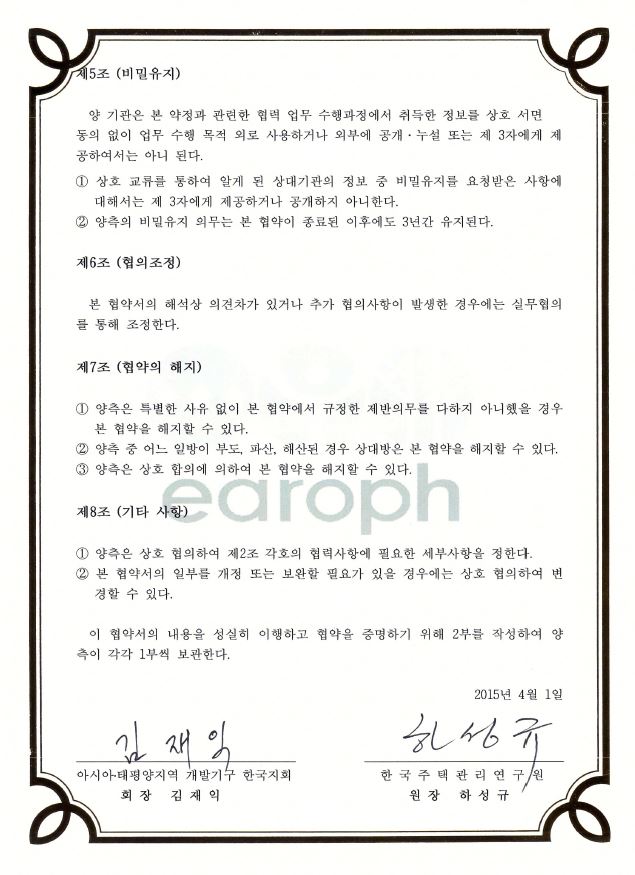 제5조 (비밀유지)
양 기관은 본 약정과 관련한 협력 업무 수행과정에서 취득한 정보를 상호 서면
동의 없이 업무 수행 목적 외로 사용하거나 외부에 공개·누설 또는 제 3자에게 제
공하여서는 아니 된다.
① 상호 교류를 통하여 알게 된 상대기관의 정보 중 비밀유지를 요청받은 사항에
대해서는 제 3자에게 제공하거나 공개하지 아니한다.
② 양측의 비밀유지 의무는 본 협약이 종료된 이후에도 3년간 유지된다.
제6조 (협의조정)
본 협약서의 해석상 의견차가 있거나 추가 협의사항이 발생한 경우에는 실무협의
를 통해 조정한다.
제7조 (협약의 해지)
① 양측은 특별한 사유 없이 본 협약에서 규정한 제반의무를 다하지 아니했을 경우
본 협약을 해지할 수 있다.
② 양측 중 어느 일방이 부도, 파산, 해산된 경우 상대방은 본 협약을 해지할 수 있다.
③ 양측은 상호 합의에 의하여 본 협약을 해지할 수 있다.
earoph
제8조 (기타 사항)
① 양측은 상호 협의하여 제2조 각호의 협력사항에 필요한 세부사항을 정한다.
② 본 협약서의 일부를 개정 또는 보완할 필요가 있을 경우에는 상호 협의하여 변
경할 수 있다.
이 협약서의 내용을 성실히 이행하고 협약을 증명하기 위해 2부를 작성하여 양
측이 각각 1부씩 보관한다.
2015년 4월 1일
김재익 하성규
아시아·태평양지역 개발기구 한국지회 한국주택관리연구원
회장 김재익 원장 하성규